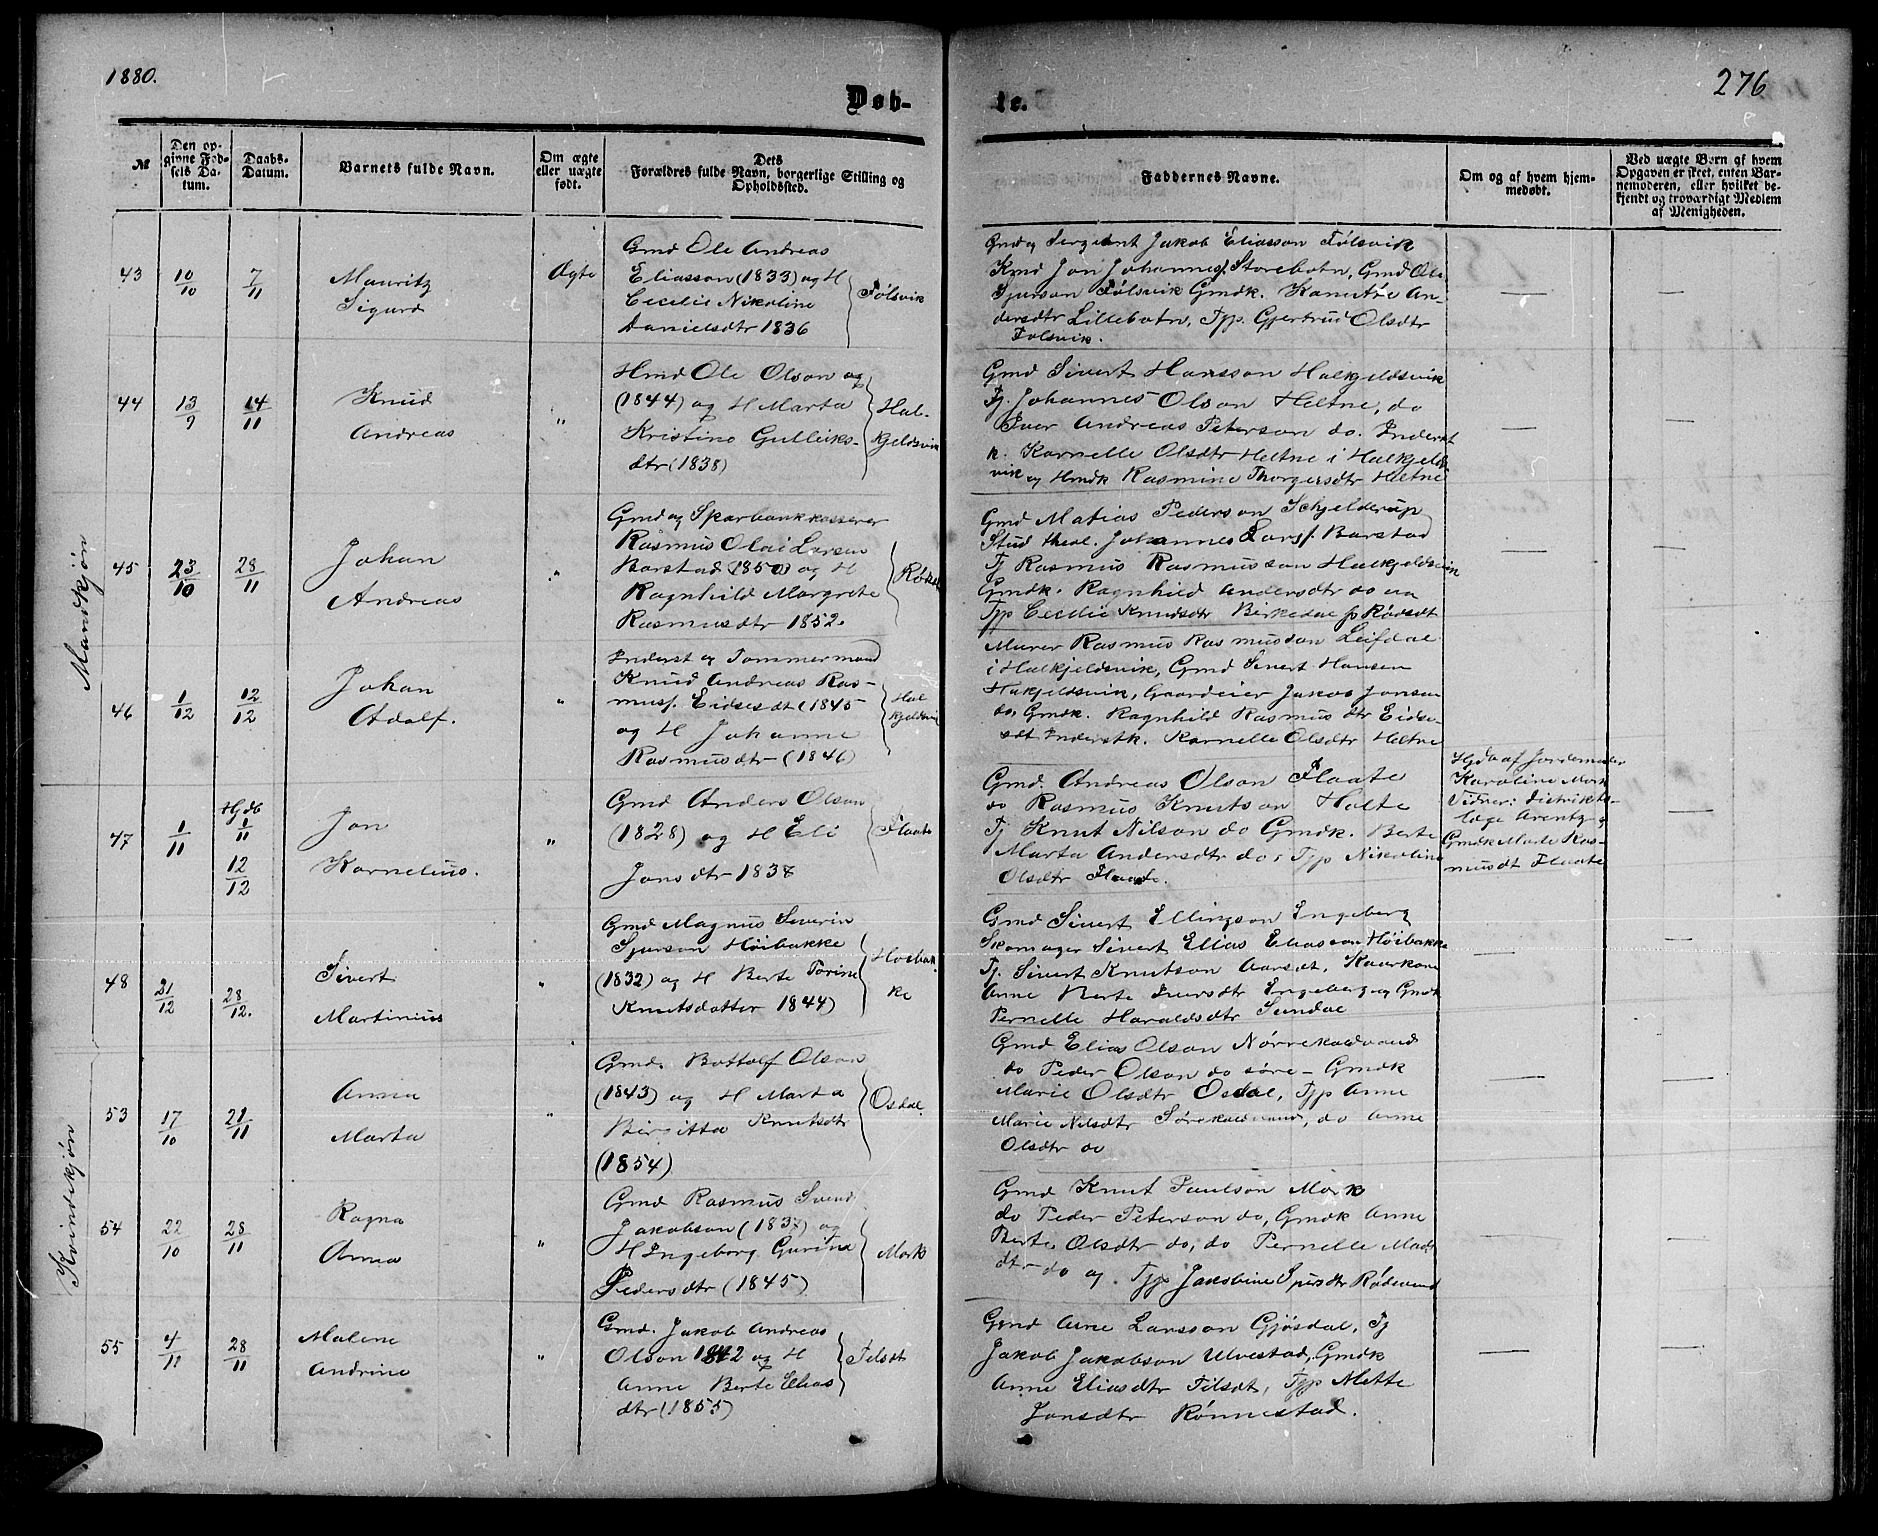 1880.
276
Døb-
te.
№
Den op-
givne Fød-
sels Da-
tum.
Daabs-
Datum.
Barnets fulde Navn.
Om ægte
eller uægte
født.
Dets
Forældres fulde Navn, borgerlige Stilling og
Opholdssted.
Faddernes Navne.
Om og af hvem hjem-
medøbt.
Ved uægte Børn af hvem
Opgaven er skeet, enten Bar-
nemoderen, eller hvilket be-
kjendt og troværdigt Medlem
af Menigheden.
Mandkjøn
43
10/10
7/11
Mauritz
Sigurd
Ægte
Gmd Ole Andreas
Eliasson (1833) og H
Cecilie Nikoline
Danielsdtr 1836
Følsvik
Gmd og Sergeant Jakob Eliasson Følsvik
Kmd Jon Johannesf. Storebotn, Gmd Ole
Sjurson Følsvik Gmdk. Kanutte An-
dersdtr Lillebotn, Tjp. Gjertrud Olsdtr
Følsvik.
44
13/9
14/11
Knud
Andreas
"
Hmd Ole Olson og
(1844) og H Marta
Kristine Gulleiks-
dtr (1838)
Hal-
kjeldsvik
Gmd Sivert Hansson Halkjeldsvik
Tj. Johannes Olson Heltne, do
Iver Andreas Peterson do. Inderst
k. Karnelle Olsdtr Heltne i Halkjelds
vik og Hmdk Rasmine Thorgersdtr Heltne
45
23/10
28/11
Johan
Andreas
"
Gmd og Sparbankkasserer
Rasmus Olai Larsen
Barstad (1850) og H
Ragnhild Margrete
Rasmusdtr 1852.
Gmd Matias Pederson Schjelderup
Stud theol. Johannes Larsf. Barstad
Tj Rasmus Rasmusson Halkjeldsvik
Gmdk. Ragnhild Andersdtr do
Tjp Cecilie Knudsdtr Birkedal
46
1/12
12/12
Johan
Adolf.
"
Inderst og Tømmermand
Knud Andreas Ras-
musf. Eidsesdt (1845
og H Johanne
Rasmusdtr (1846)
Hal
kjeldsvik
Murer Rasmus Rasmusson Leifdal
i Halkjeldsvik, Gmd Sivert Hansen
Halkjeldsvik, Gaardeier Jakob Jonsen
do, Gmdk. Ragnhild Rasmusdtr Eidse-
sdt Inderstk. Karnelle Olsdtr Heltne
47
1/11
Hjdb
1/11
12/12
Jon
Kornelius.
"
Gmd Anders Olson
(1828) og H Eli
Jonsdtr 1838
Flaate
Gmd. Andreas Olson Flaate
do Rasmus Knutson Holte
Tj Knut Nilson do Gmdk. Berte
Marta Andersdtr do, Tjp Nikoline
Olsdtr Flaate.
Hjdb af Jordemoder
Karoline Mork
Vidner: Distrikts-
læge Arentz og
Gmdk Made Ras-
musdt Flaate
48
21/12
28/12.
Sivert
Martinius
"
Gmd Magnus Severin
Sjurson Høibakke
(1832) og H Berte Torine
Knutsdatter 1844)
Hoibak
ke
Gmd Sivert Ellingson Ingeberg
Skomager Sivert Elias Eliasson Høibakke
Tj. Sivert Knutson Aarsdt. Kaarkone
Anne Berte Iversdtr Ingeberg og Gmdk
Pernelle Haraldsdtr Sundal
Kvindekjøn
53
17/10
21/11
Anna
Marta
"
Gmd. Bottolf Olson
(1843) og H Marta
Birgitta Knutsdtr
(1854)
Osdal
Gmd Elias Olson Nørrekaldvand
do Peder Olson do søre - Gmdk
Marie Olsdtr Osdal, Tjp Anne
Marie Nilsdtr Sørekaldvand, do Anne
Olsdtr do
54
22/10
28/11
Ragna
Anna
"
Gmd Rasmus Svend
Jakobson (1837) og
H Ingeborg Gurine
Pedersdtr (1845)
Mork
Gmd Knut Paulson Mork
do Peder Peterson do, Gmdk Anne
Berte Olsdtr do, do Pernelle Mads
dtr do og Tjp Jakobine Spirsdtr Rødsvend
55
4/11
28/11
Malene
Andrine
"
Gmd. Jakob Andreas
Olson 1842 og H
Anne Berte Elias
dtr (1855)
Filsdt
Gmd Arne Larsson Gjøsdal, Tj
Jakob Jakobson Ulvestad, Gmdk
Anne Eliasdtr Filsdt, Tjp Mette
Jonsdtr Rønnestad.